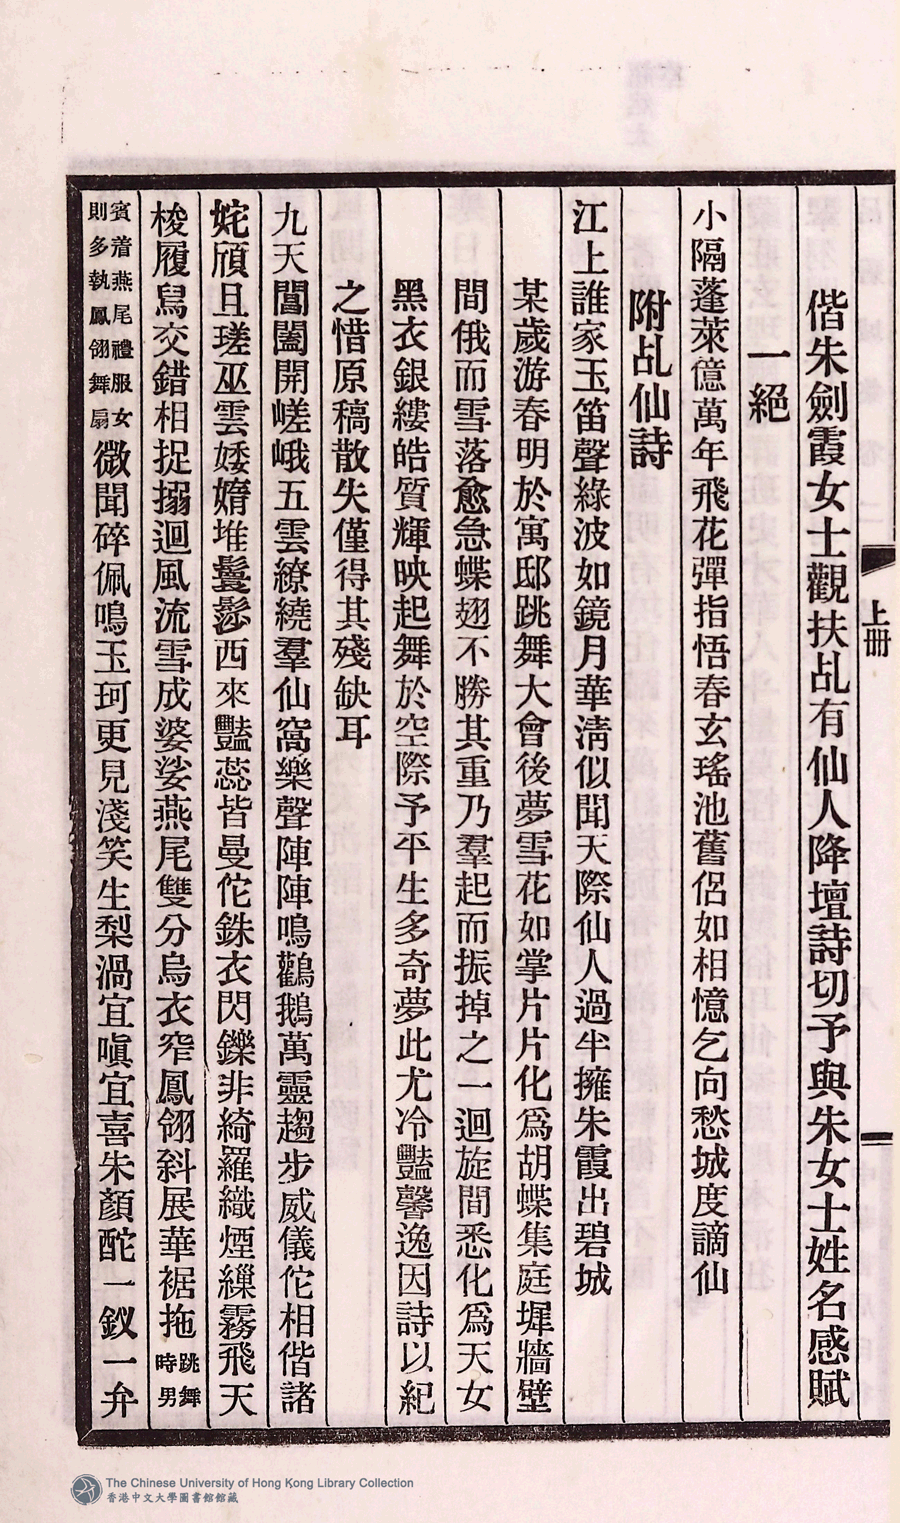 上冊
偕朱劍霞女士觀扶乩有仙人降壇詩切予與朱女士姓名感賦
一絕
小隔蓬萊億萬年飛花彈指悟春玄瑤池舊侶如相憶乞向愁城度謫仙
附乩仙詩
江上誰家玉笛聲綠波如鏡月華淸似聞天際仙人過半擁朱霞出碧城
某歲游春明於寓邸跳舞大會後夢雪花如掌片片化爲胡蝶集庭墀牆壁
間俄而雪落愈急蝶翅不勝其重乃羣起而振掉之一迴旋間悉化爲天女
黑衣銀縷皓質輝映起舞於空際予平生多奇夢此尤冷豔馨逸因詩以紀
之惜原稿散失僅得其殘缺耳
九天閶闔開嵯峨五雲繚繞羣仙窩樂聲陣陣鳴鸛鵝萬靈趨步威儀佗相偕諸
姹頎且瑳巫雲婑媠堆鬟髿西來豔蕊皆曼佗銖衣閃鑠非綺羅織煙繅霧飛天
梭履舃交錯相捉搦迴風流雪成婆娑燕尾雙分烏衣窄鳳翎斜展華裾拖跳舞時男
賓着燕尾禮服女則多執鳳翎舞扇微聞碎佩鳴玉珂更見淺笑生梨渦宜嗔宜喜朱顏酡一釵一弁
The Chinese University of Hong Kong Library Collection
香港中文大學圖書館館藏